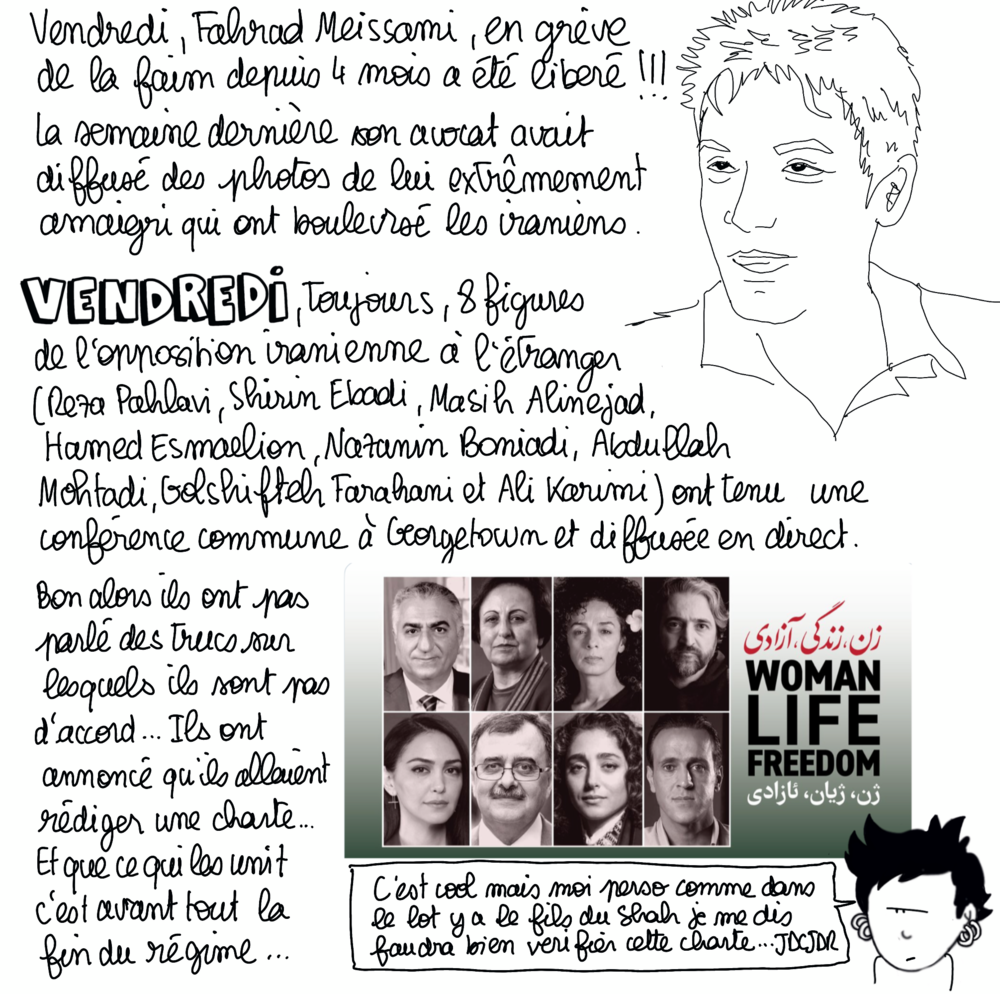 Vendredi, Fahrad Meissami, en grève
de la faim depuis 4 mois a été liberé !!!
La semaine dernière son avocat avait
diffusé des photos de lui extrêmement
amaigri qui ont boulevrsé les iraniens.
VENDREDI, Toujours, 8 figures
de l'opposition iranienne à l'étranger
(Reza Pahlavi, Shirin Ebadi, Masih Alinejad,
Hamed Esmaelion, Nazanin Boniadi, Abdullah
Mohtadi, Golshifteh Farahani et Ali Karimi) ont tenu une
conférence commune à Georgetown et diffusée en direct.
Bon alors ils ont pas
parlé des trucs sur
lesquels ils sont pas
d'accord... Ils ont
annoncé qu'ils allaient
rédiger une charte...
Et que ce qui les unit
c'est avant tout la
fin du régime...
زن، زندگی، آزادی
WOMAN
LIFE
FREEDOM
ژن، ژیان، ئازادی
C'est cool mais moi perso comme dans
le lot y a le fils du Shah je me dis
faudra bien verifier cette charte... JDCJDR